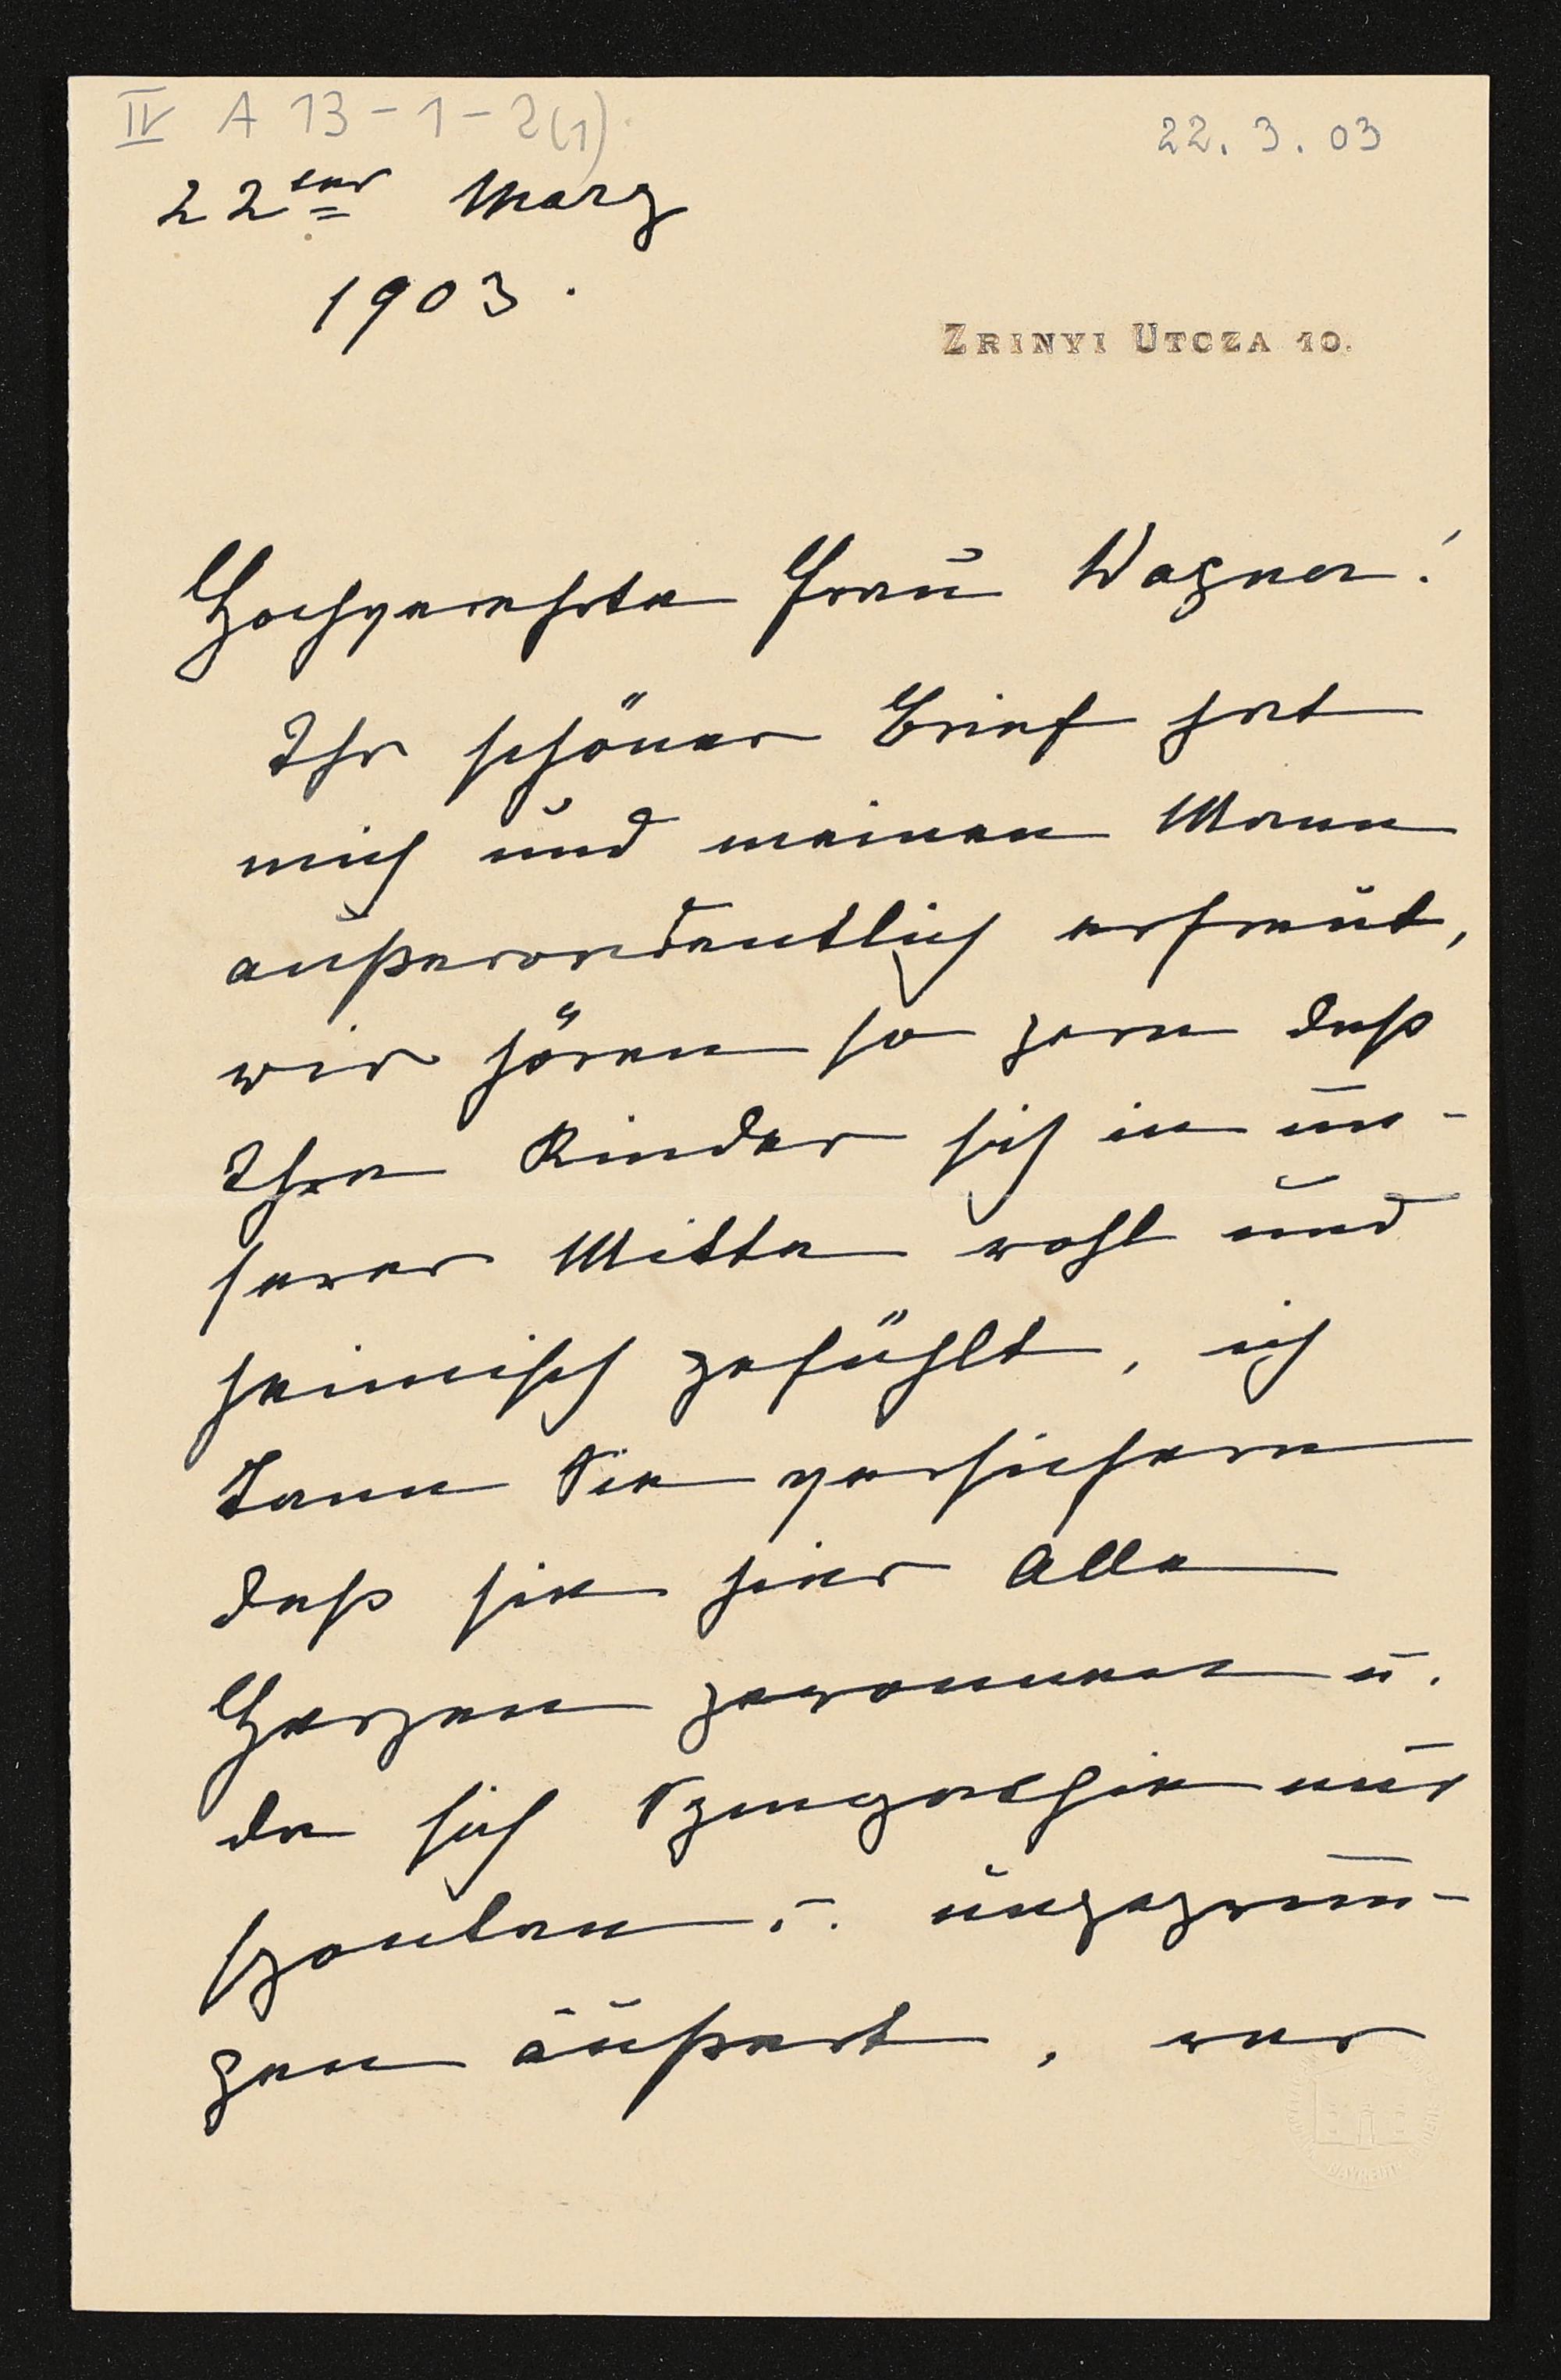 IV A 13-1-2(1).
22. 3. 03
22ter März
1903.
ZRINYI UTCZA 10.
Hochverehrte Frau Wagner!
Ihr schöner Brief hat
mich und meinen Mann
außerordentlich erfreut,
wir hören so gern daß
Ihre Kinder sich in un-
serer Mitte wohl und
heimisch gefühlt, ich
kann Sie versichern
daß sie hier Alle
Herzen gewonnen u.
da sich Sympathie nur
spontan u. ungezwun-
gen äußert, war